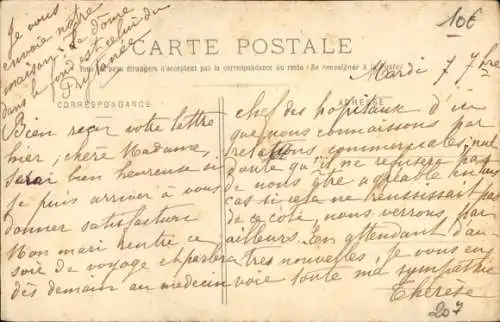 Je vous
envoie notre
maison. Le dôme
dans le fond est celui du
Prytanée
10€
CARTE POSTALE
Tous les pays étrangers n'acceptent pas la correspondance au recto (Se renseigner à la Poste)
Mardi 7 7bre
CORRESPONDANCE
ADRESSE
Bien reçu votre lettre
hier, chère Madame,
serai bien heureuse si
je puis arriver à vous
donner satisfaction
Mon mari rentre ce
soir de voyage et parlera
dès demain au médecin
chef des hopitaux d'ici
que nous connaissons par
relations commerciales, nul
doute qu'il ne refusera pas
de nous être agréable en tous
cas si cela ne réussissait pas
de ce coté, nous verrons par
ailleurs. En attendant d'au
tres nouvelles, je vous en
voie toute ma sympathie
Thérèse
207